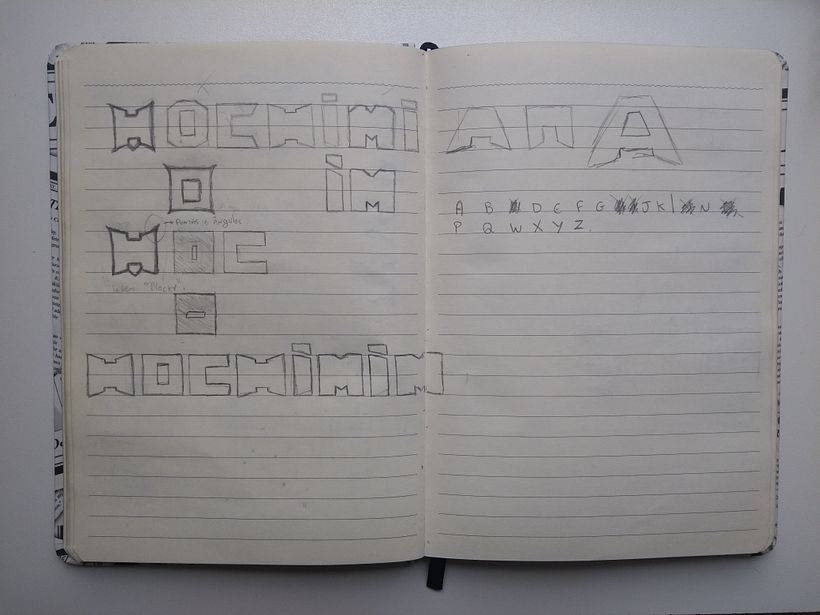 HOCHiMi
O iM
Pontas e Ângulos
HOC
"Blocky".
O
HOCHiMiM
AnA
A B D E F G J K N
P Q W X Y Z.